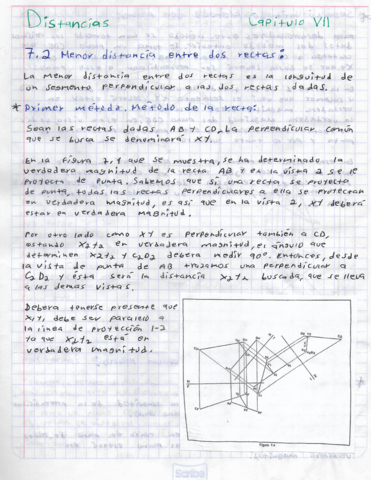 Distancias Capitulo VII
7.2 Menor distancia entre dos rectas:
La menor distancia entre dos rectas es la longitud de
un segmento perpendicular a las dos rectas dadas.
* Primer metodo. Metodo de la recta:
Sean las rectas dadas AB y CD, La perpendicular común
que se busca se denominará XY.
En la Figura 7.4 que se muestra, se ha determinado la
verdadera magnitud de la recta AB y en la vista 2 se le
proyecta de punta. Sabemos que si una recta se proyecta
de punta, todas las rectas perpendiculares a ella se proyectan
en verdadera magnitud, es así que en la vista 2, XY deberá
estar en verdadera magnitud.
Por otro lado como XY es perpendicular también a CD,
estando X2Y2 en verdadera magnitud, el ángulo que
determinen X2Y2 y C2D2 deberá medir 90°. Entonces, desde
la vista de punta de AB trazamos una perpendicular a
C2D2 y ésta será la distancia X2Y2 buscada, que se lleva
a las demás vistas.
Debera tenerse presente que
X1Y1 debe ser paralelo a
la linea de proyección 1-2
ya que X2Y2 está en
verdadera magnitud.
Figura 7.4
Scribe